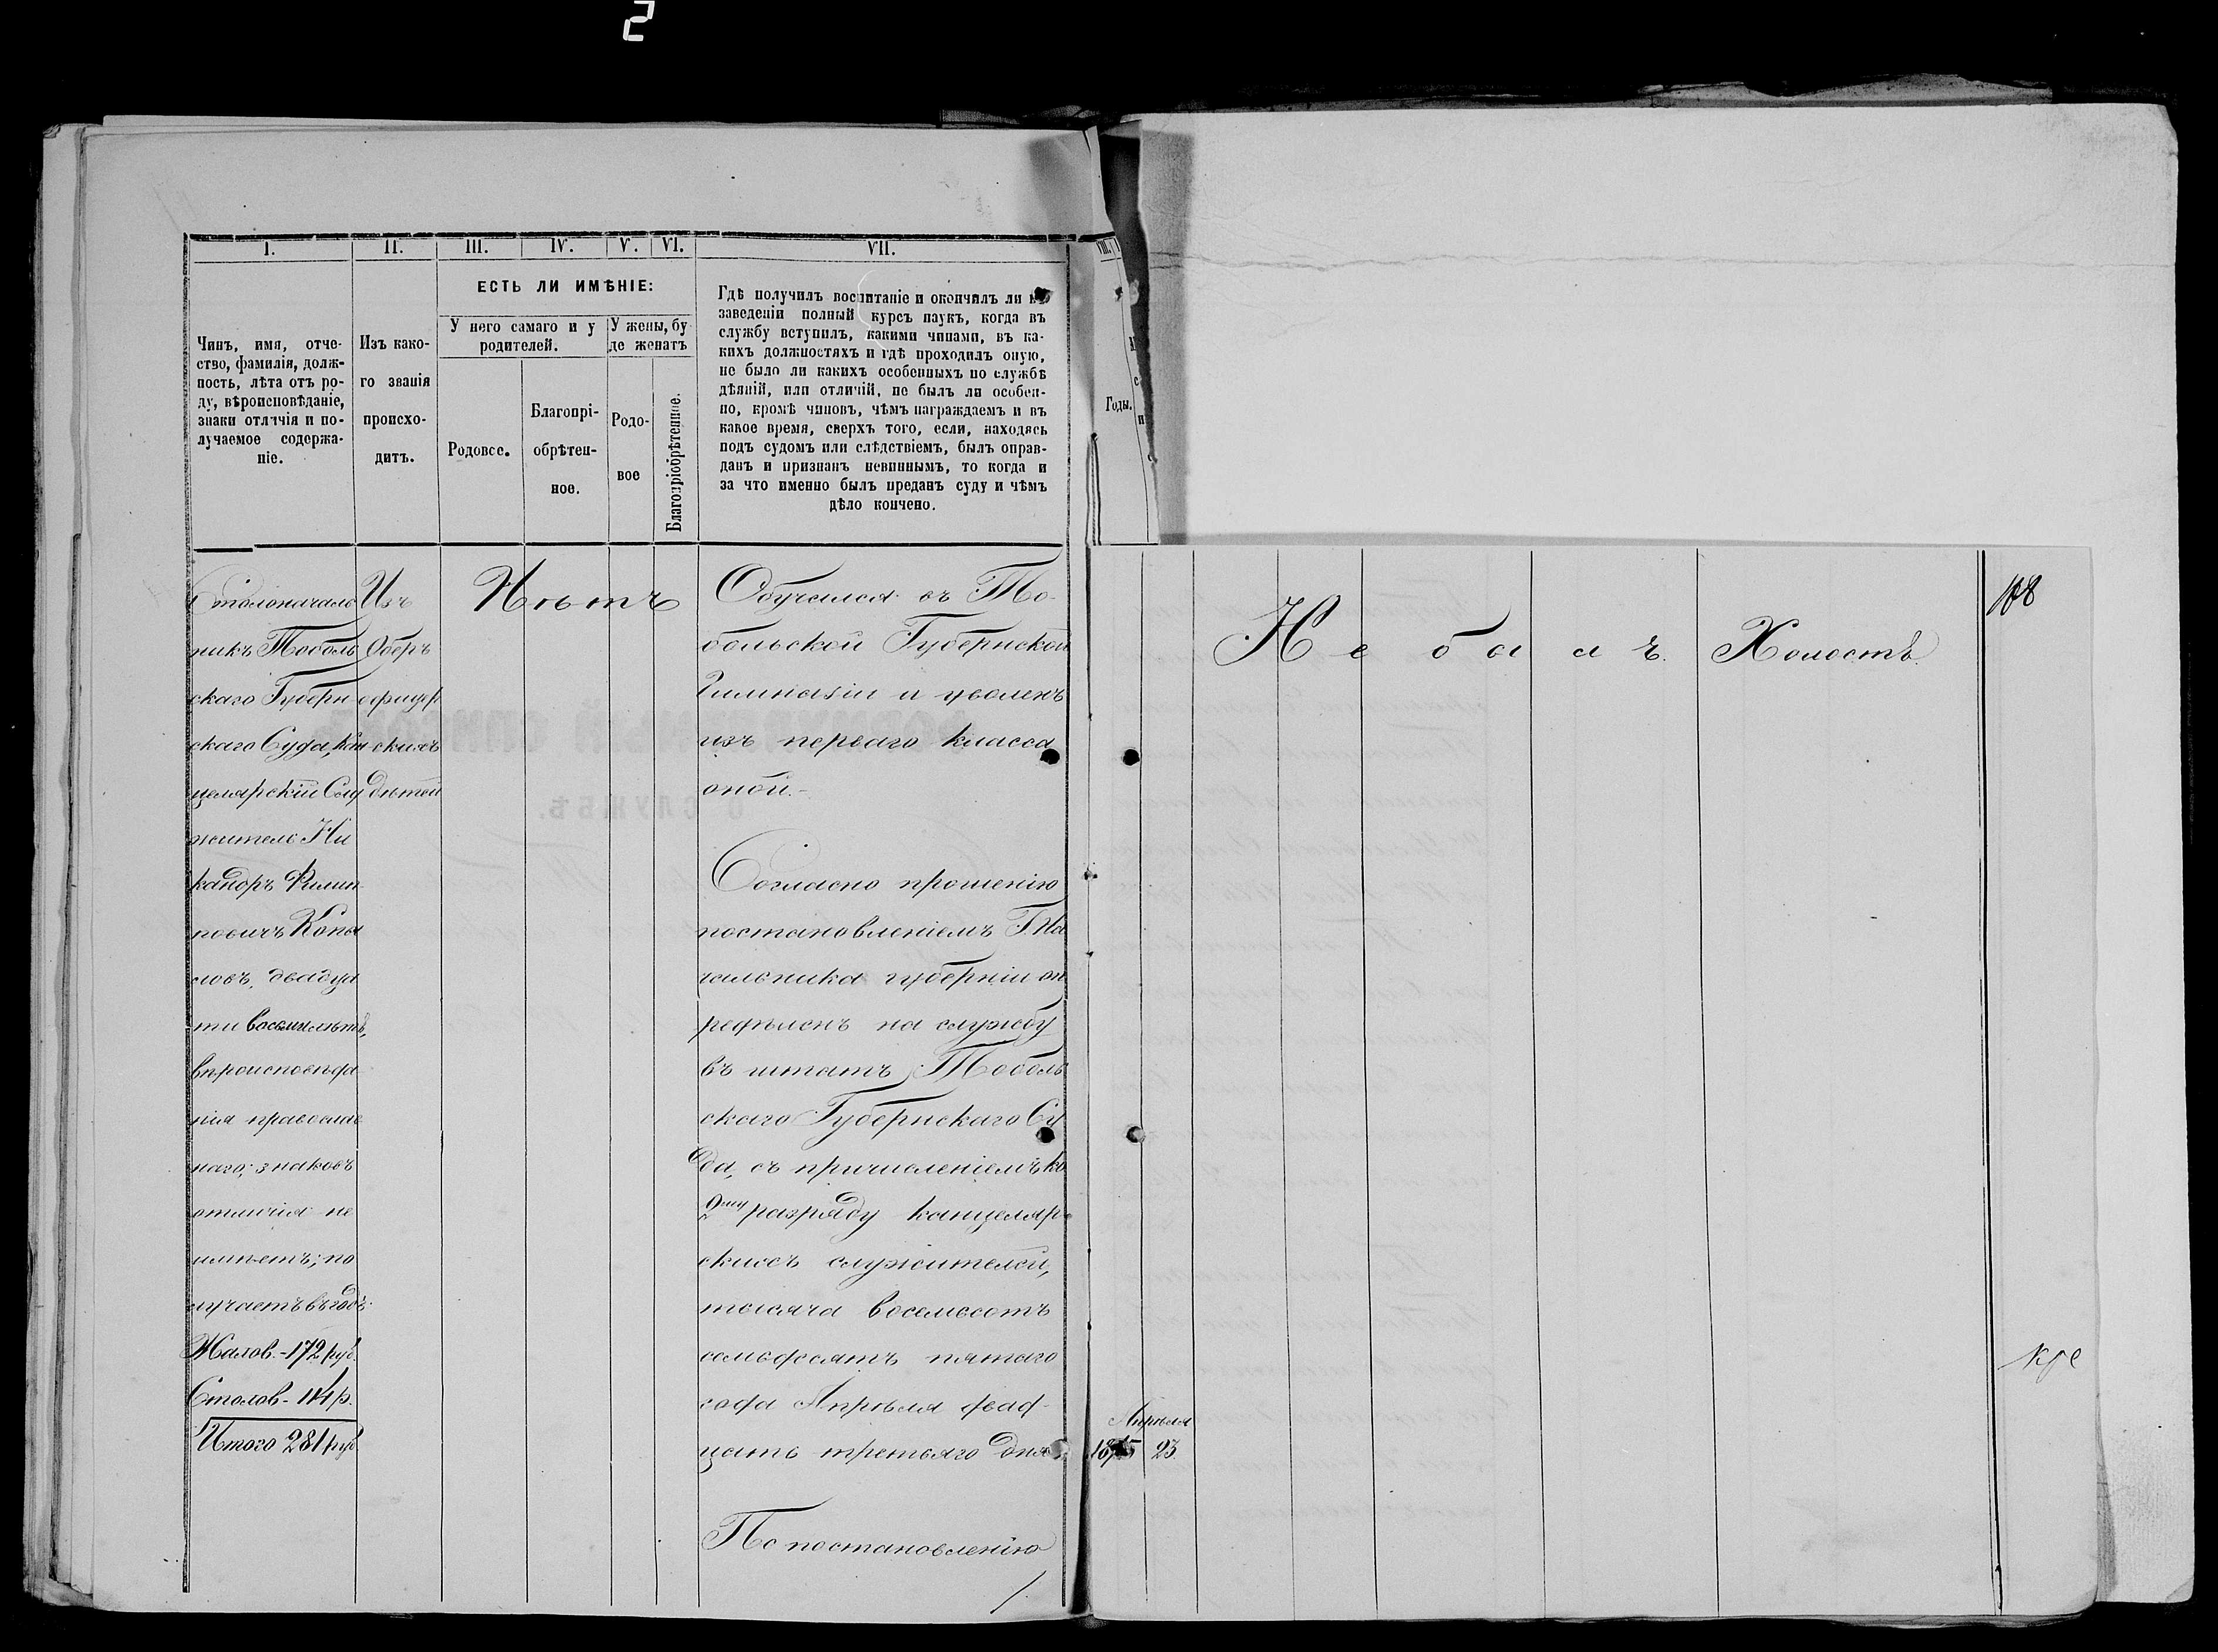 2
I.
II.
III.
IV.
V.
VI.
VII.
VIII.
ЕСТЬ ЛИ ИМѢНІЕ:
У него самаго и у
родителей.
У жены, бу
де женатъ
Чинъ, имя, отче-
ство, фамилія, долж-
ность, лѣта отъ ро-
ду, вѣроисповѣданіе,
знаки отличія и по-
лучаемое содержа-
ніе.
Изъ како-
го званія
происхо-
дитъ.
Родовое.
Благопрі-
обрѣтен-
ное.
Родо-
вое
Благопріобрѣтенное.
Гдѣ получилъ воспитаніе и окончилъ ли въ
заведеніи полный курсъ наукъ, когда въ
службу вступилъ, какими чинами, въ ка-
кихъ должностяхъ и гдѣ проходилъ оную,
не было ли какихъ особенныхъ по службѣ
дѣяній, или отличій, не былъ ли особен-
но, кромѣ чиновъ, чѣмъ награждаемъ и въ
какое время, сверхъ того, если, находясь
подъ судомъ или слѣдствіемъ, былъ оправ-
данъ и признанъ невиннымъ, то когда и
за что именно былъ преданъ суду и чѣмъ
дѣло кончено.
Годы.
Столоначаль
никъ Тоболь
скаго Губерн
скаго Суда, Кан
целярскій Слу
житель Ни
кандоръ Филип
повичъ Копы
ловъ, двадца
ти восьми лѣтъ,
вѣроисповѣда
нія православ
наго; знаковъ
отличія не
имѣетъ; по
лучаетъ въ годъ:
Жалов. - 172 руб.
Столов - 114 р.
Итого 281 руб
Изъ
Оберъ
офицер
скихъ
дѣтей
Нѣтъ
Обучался въ То-
больской Губернской
Гимназіи и уволенъ
изъ перваго класса
оной.-
Согласно прошенію
постановленіемъ Г. На
чальника губерніи оп
редѣленъ на службу
въ штатъ Тоболь
скаго Губернскаго Су
да, съ причисленіемъ ко
2му разряду канцеляр-
скихъ служителей,
тысяча восемьсотъ
семьдесятъ пятаго
года Апрѣля двад-
цать третьяго дня
По постановленію
Апрѣля
1875 23.
Не былъ.
Холостъ.